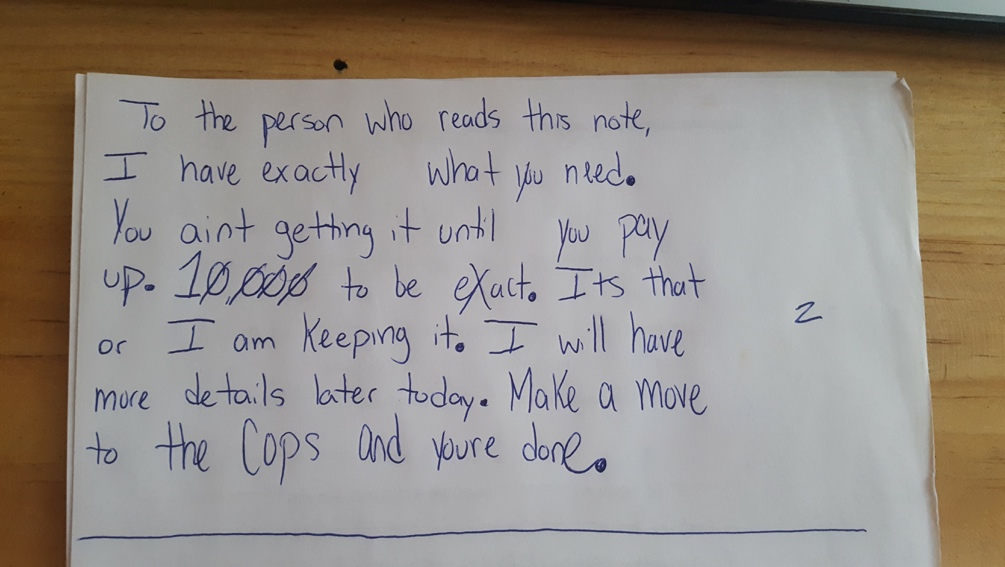 To the person who reads this note,
I have exactly what you need.
You aint getting it until you pay
up. 10,000 to be exact. Its that
or I am keeping it. I will have
2
more details later today. Make a move
to the Cops and youre done.